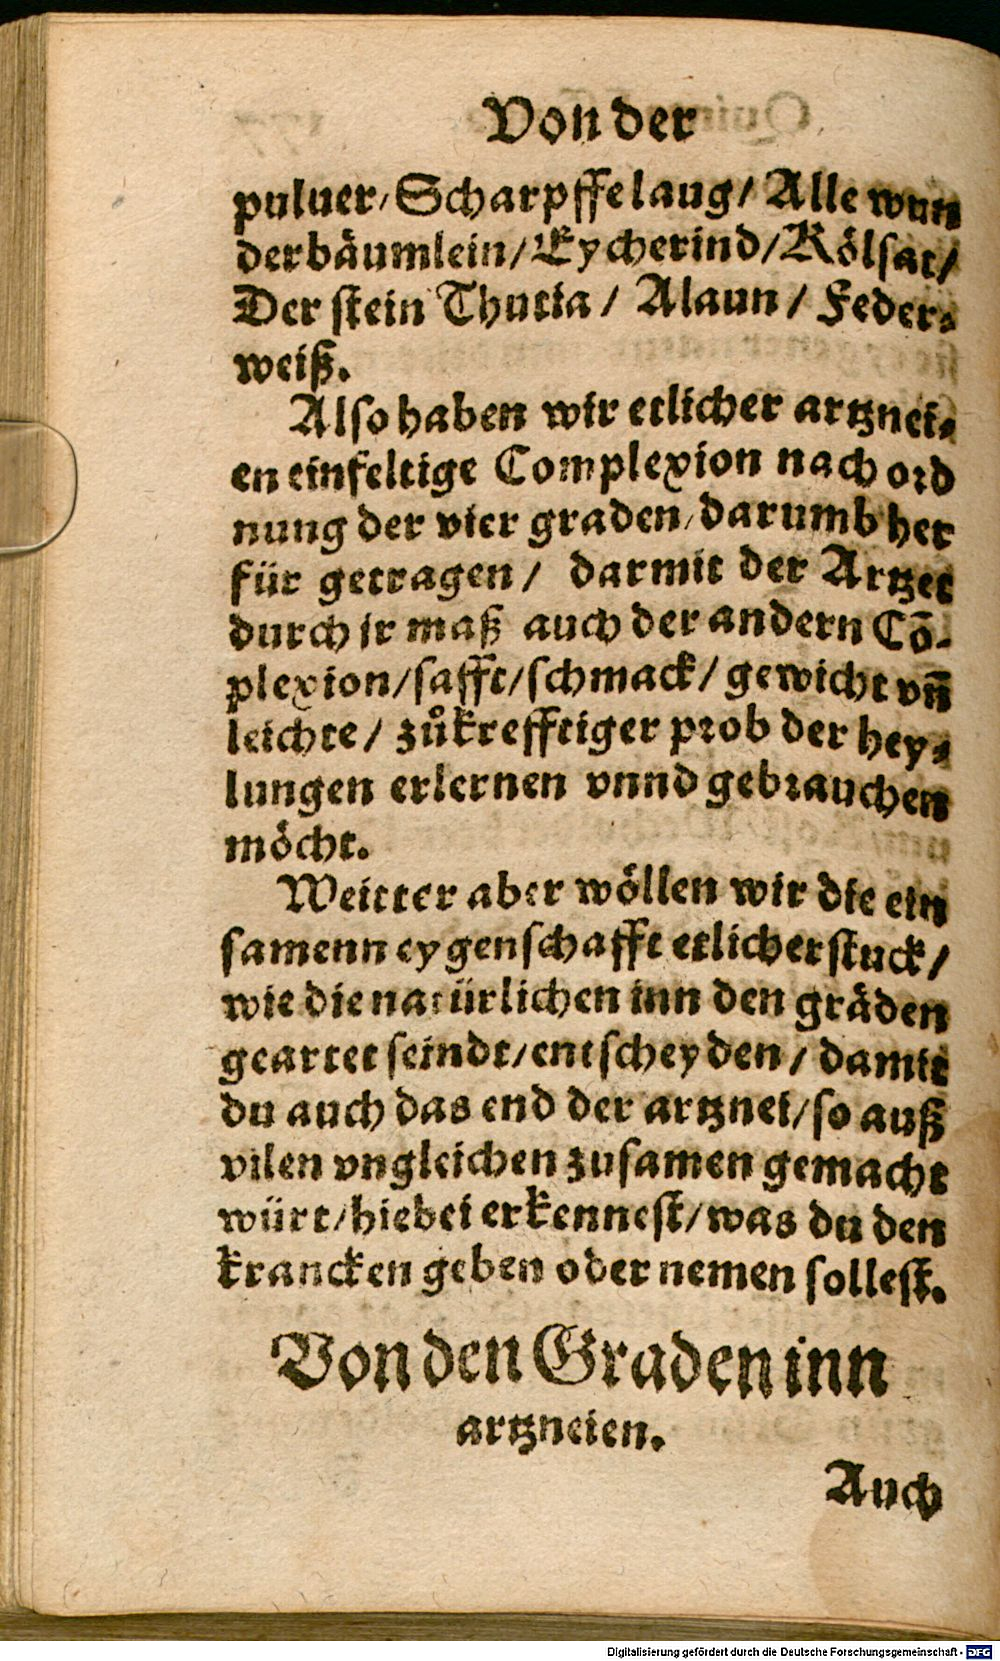 Von der
puluer/ Scharpffelaug/ Alle wun
derbäumlein/ Eycherind/ Kölsat/
Der stein Thutia/ Alaun/ Feder⸗
weiß.
Also haben wir etlicher artznei⸗
en einfeltige Complexion nach ord
nung der vier graden/ darumb her
für getragen/ darmit der Artzet
durch jr maß auch der andern Cō⸗
plexion/ safft/ schmack/ gewicht vn̄
leichte/ zůkrefftiger prob der hey⸗
lungen erlernen vnnd gebrauchen
möcht.
Weitter aber wöllen wir die ein
samenn eygenschafft etlicher stuck/
wie die natürlichen inn den gräden
geartet seindt/ entscheyden/ damit
du auch das end der artznei/ so auß
vilen vngleichen zusamen gemacht
würt/ hiebei erkennest/ was du den
krancken geben oder nemen sollest.
Von den Graden inn
artzneien.
Auch
Digitalisierung gefördert durch die Deutsche Forschungsgemeinschaft - DFG